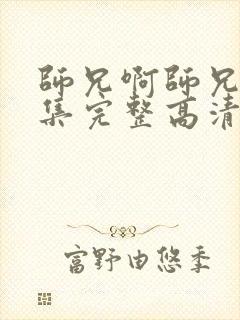 師兄啊師兄
集完整高清
富野由悠季